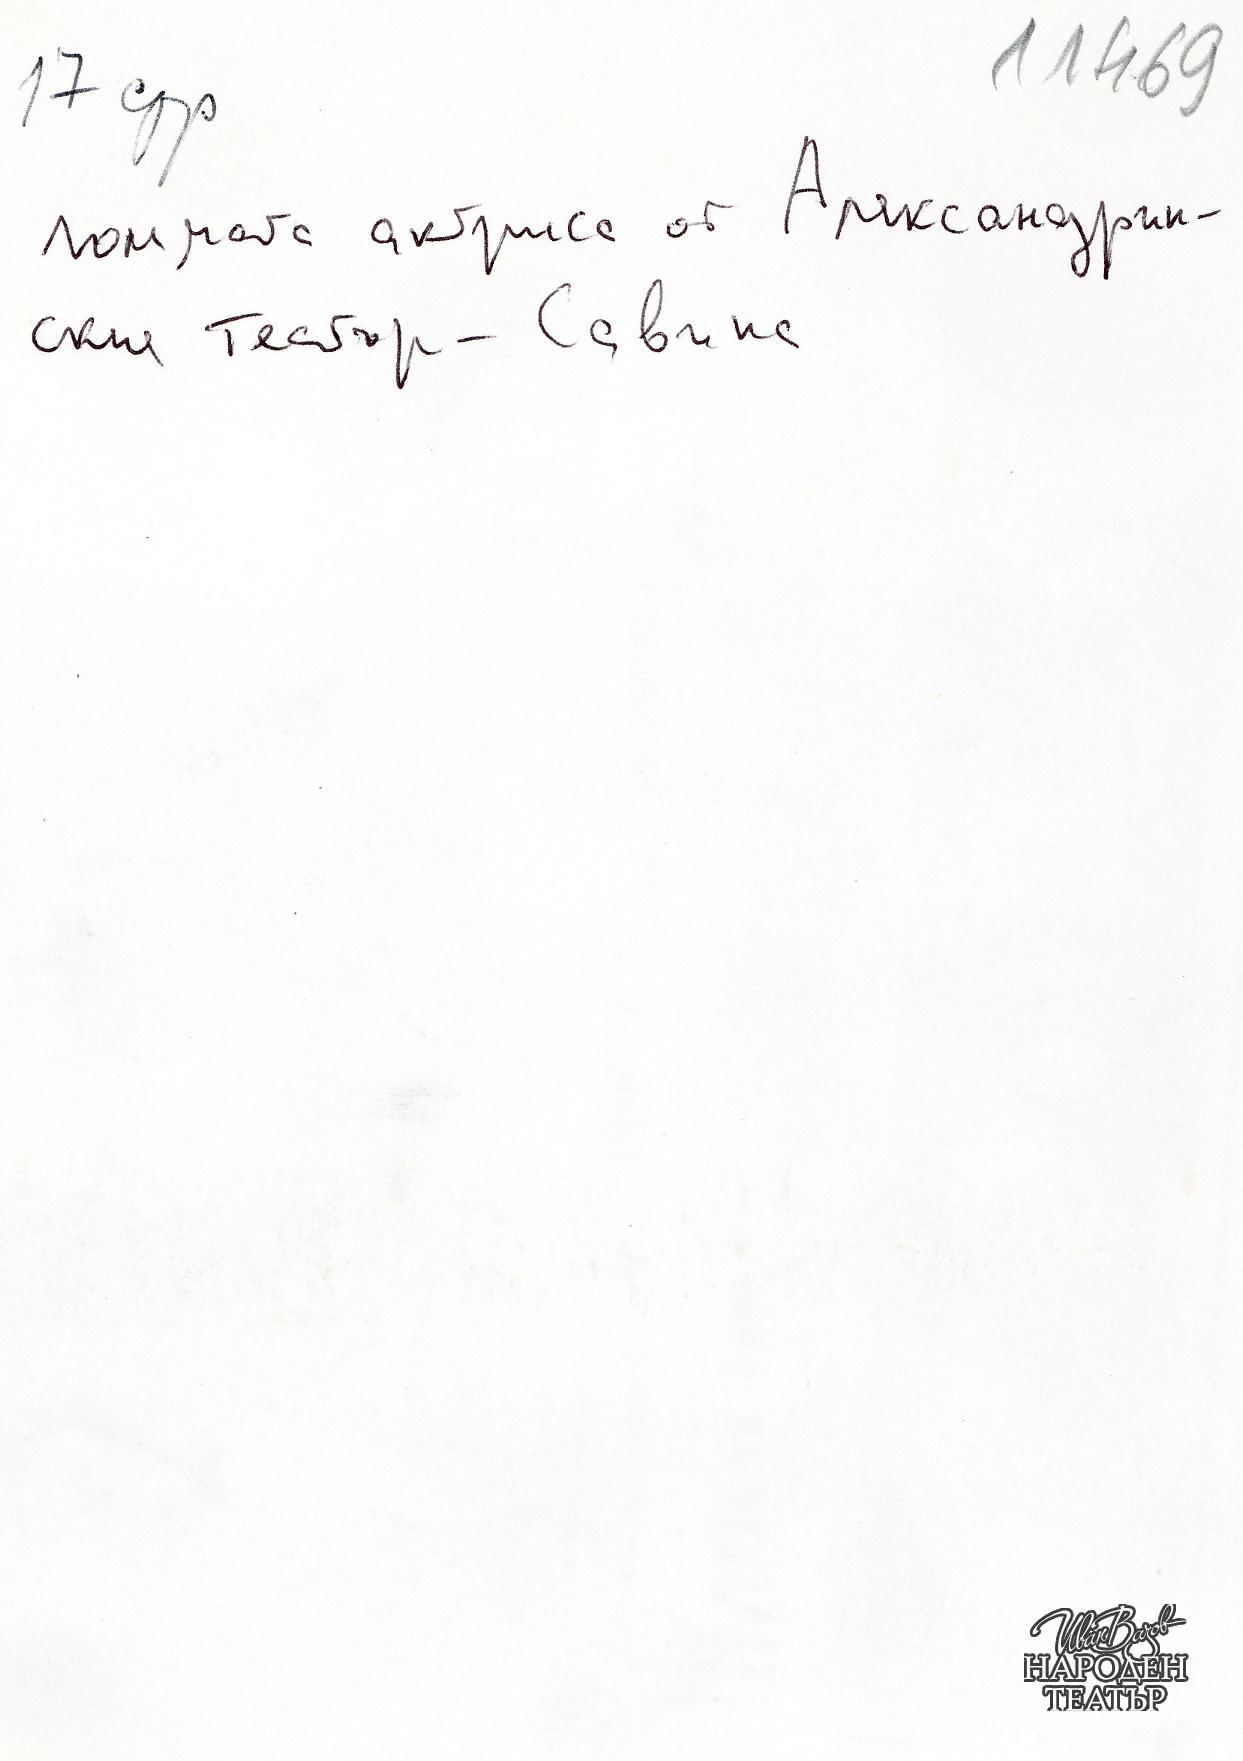 11469
17 стр
актриса от Аляксандрин-
ския театър - Савина
Иван Вазов
НАРОДЕН
ТЕАТЪР